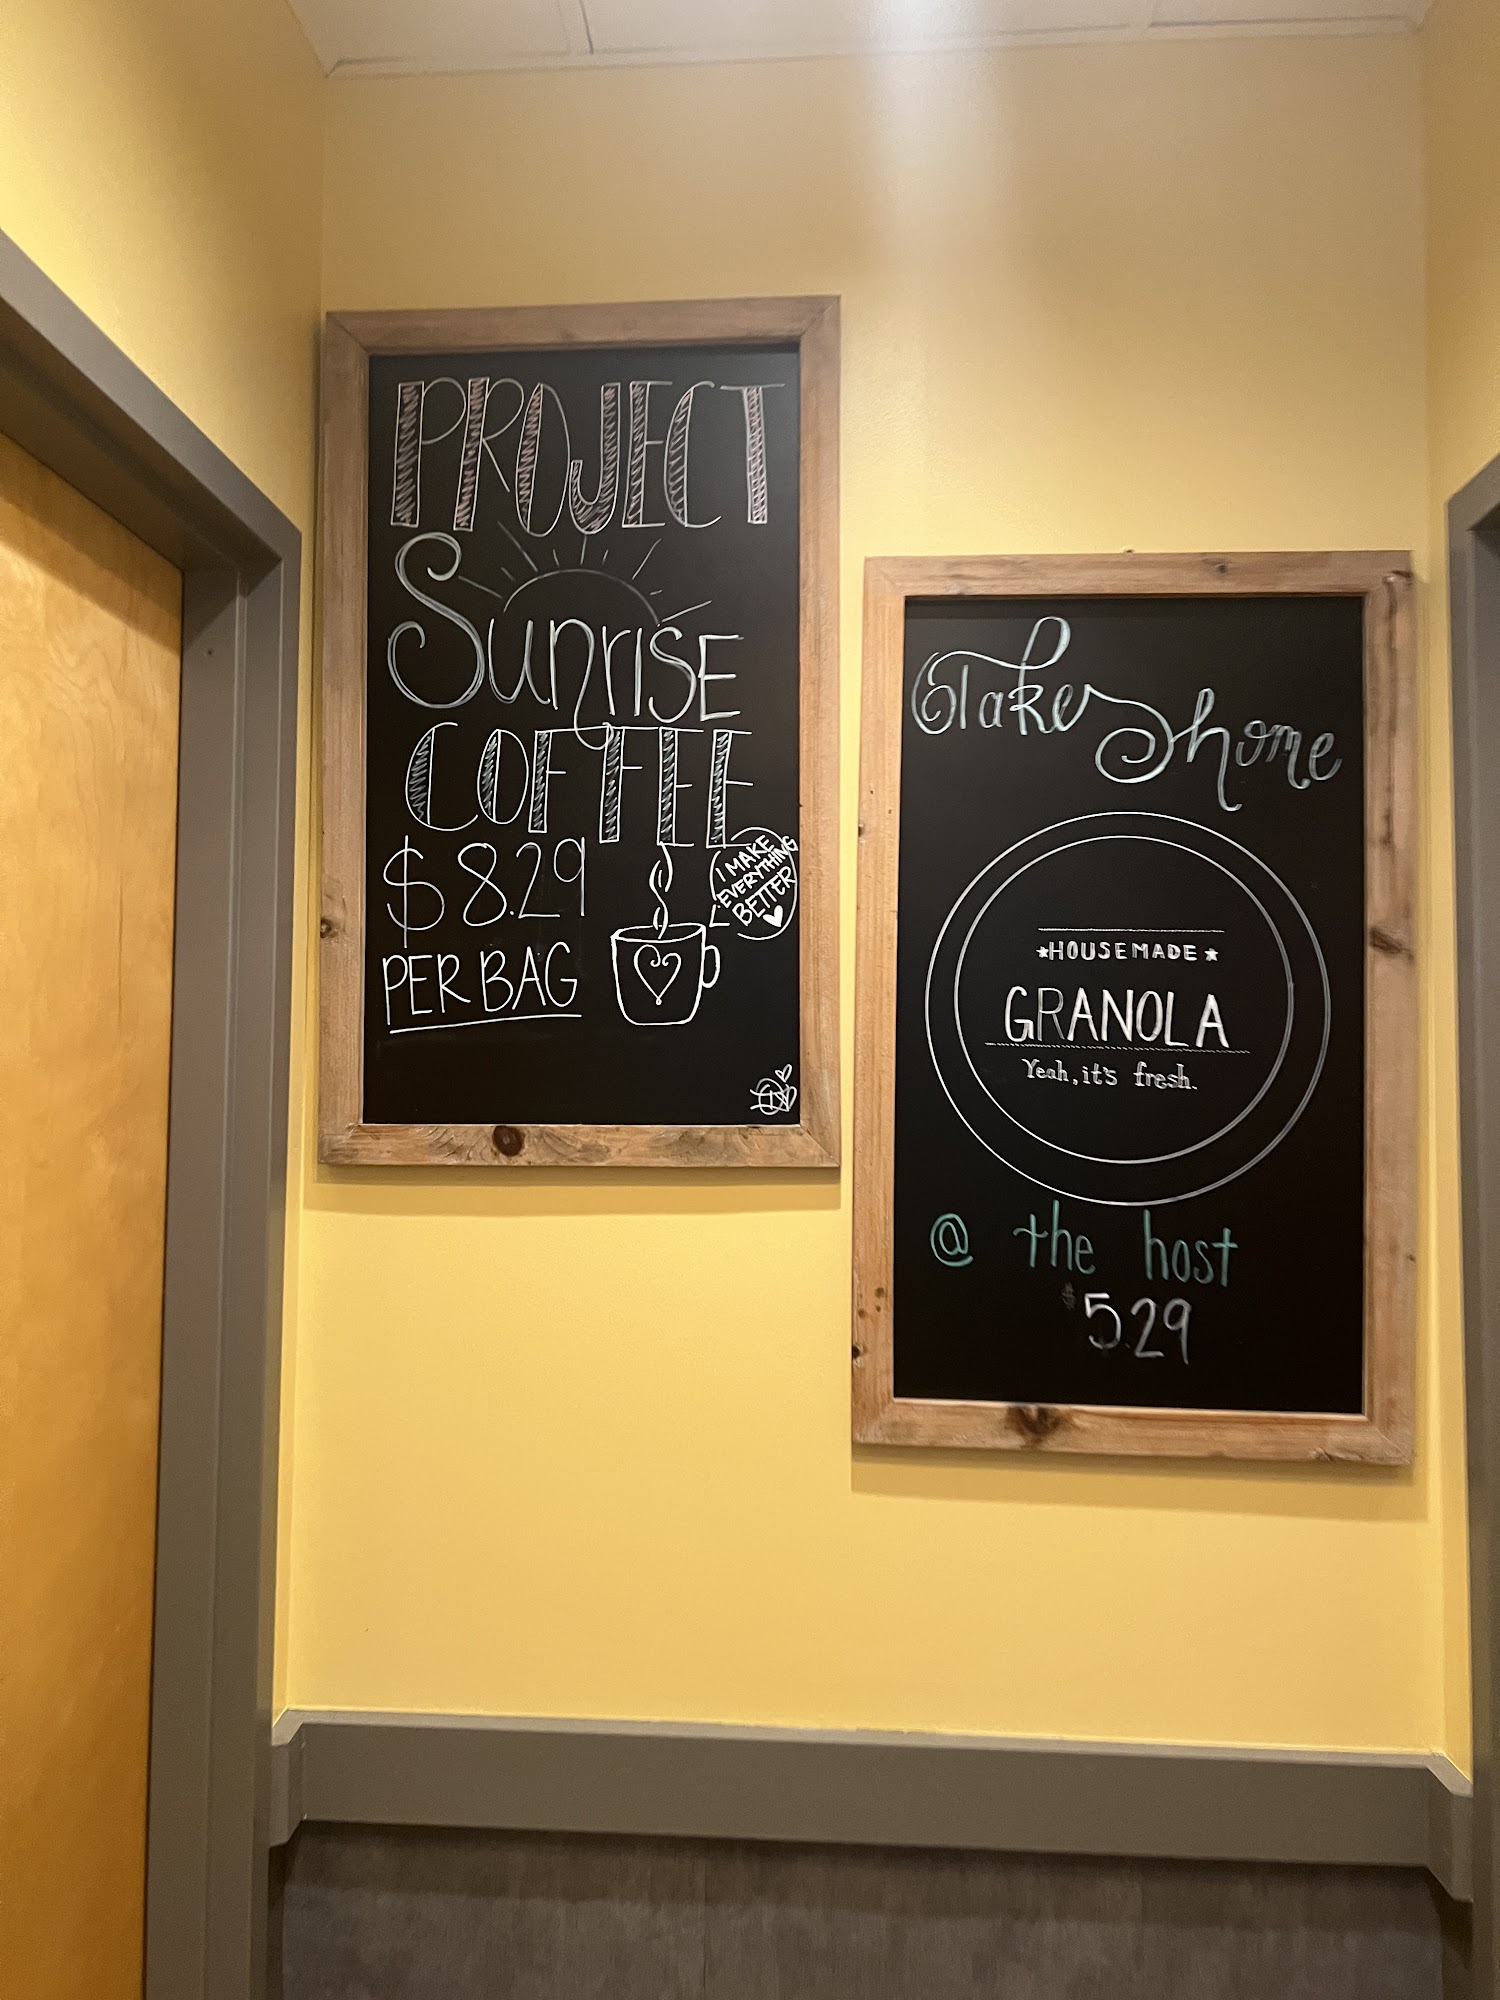 PROJECT
Sunrise
COFFEE
$8.29
PER BAG
I MAKE
EVERYTHING
BETTER
Take home
★HOUSEMADE★
GRANOLA
Yeah, it's fresh.
@ the host
$5.29